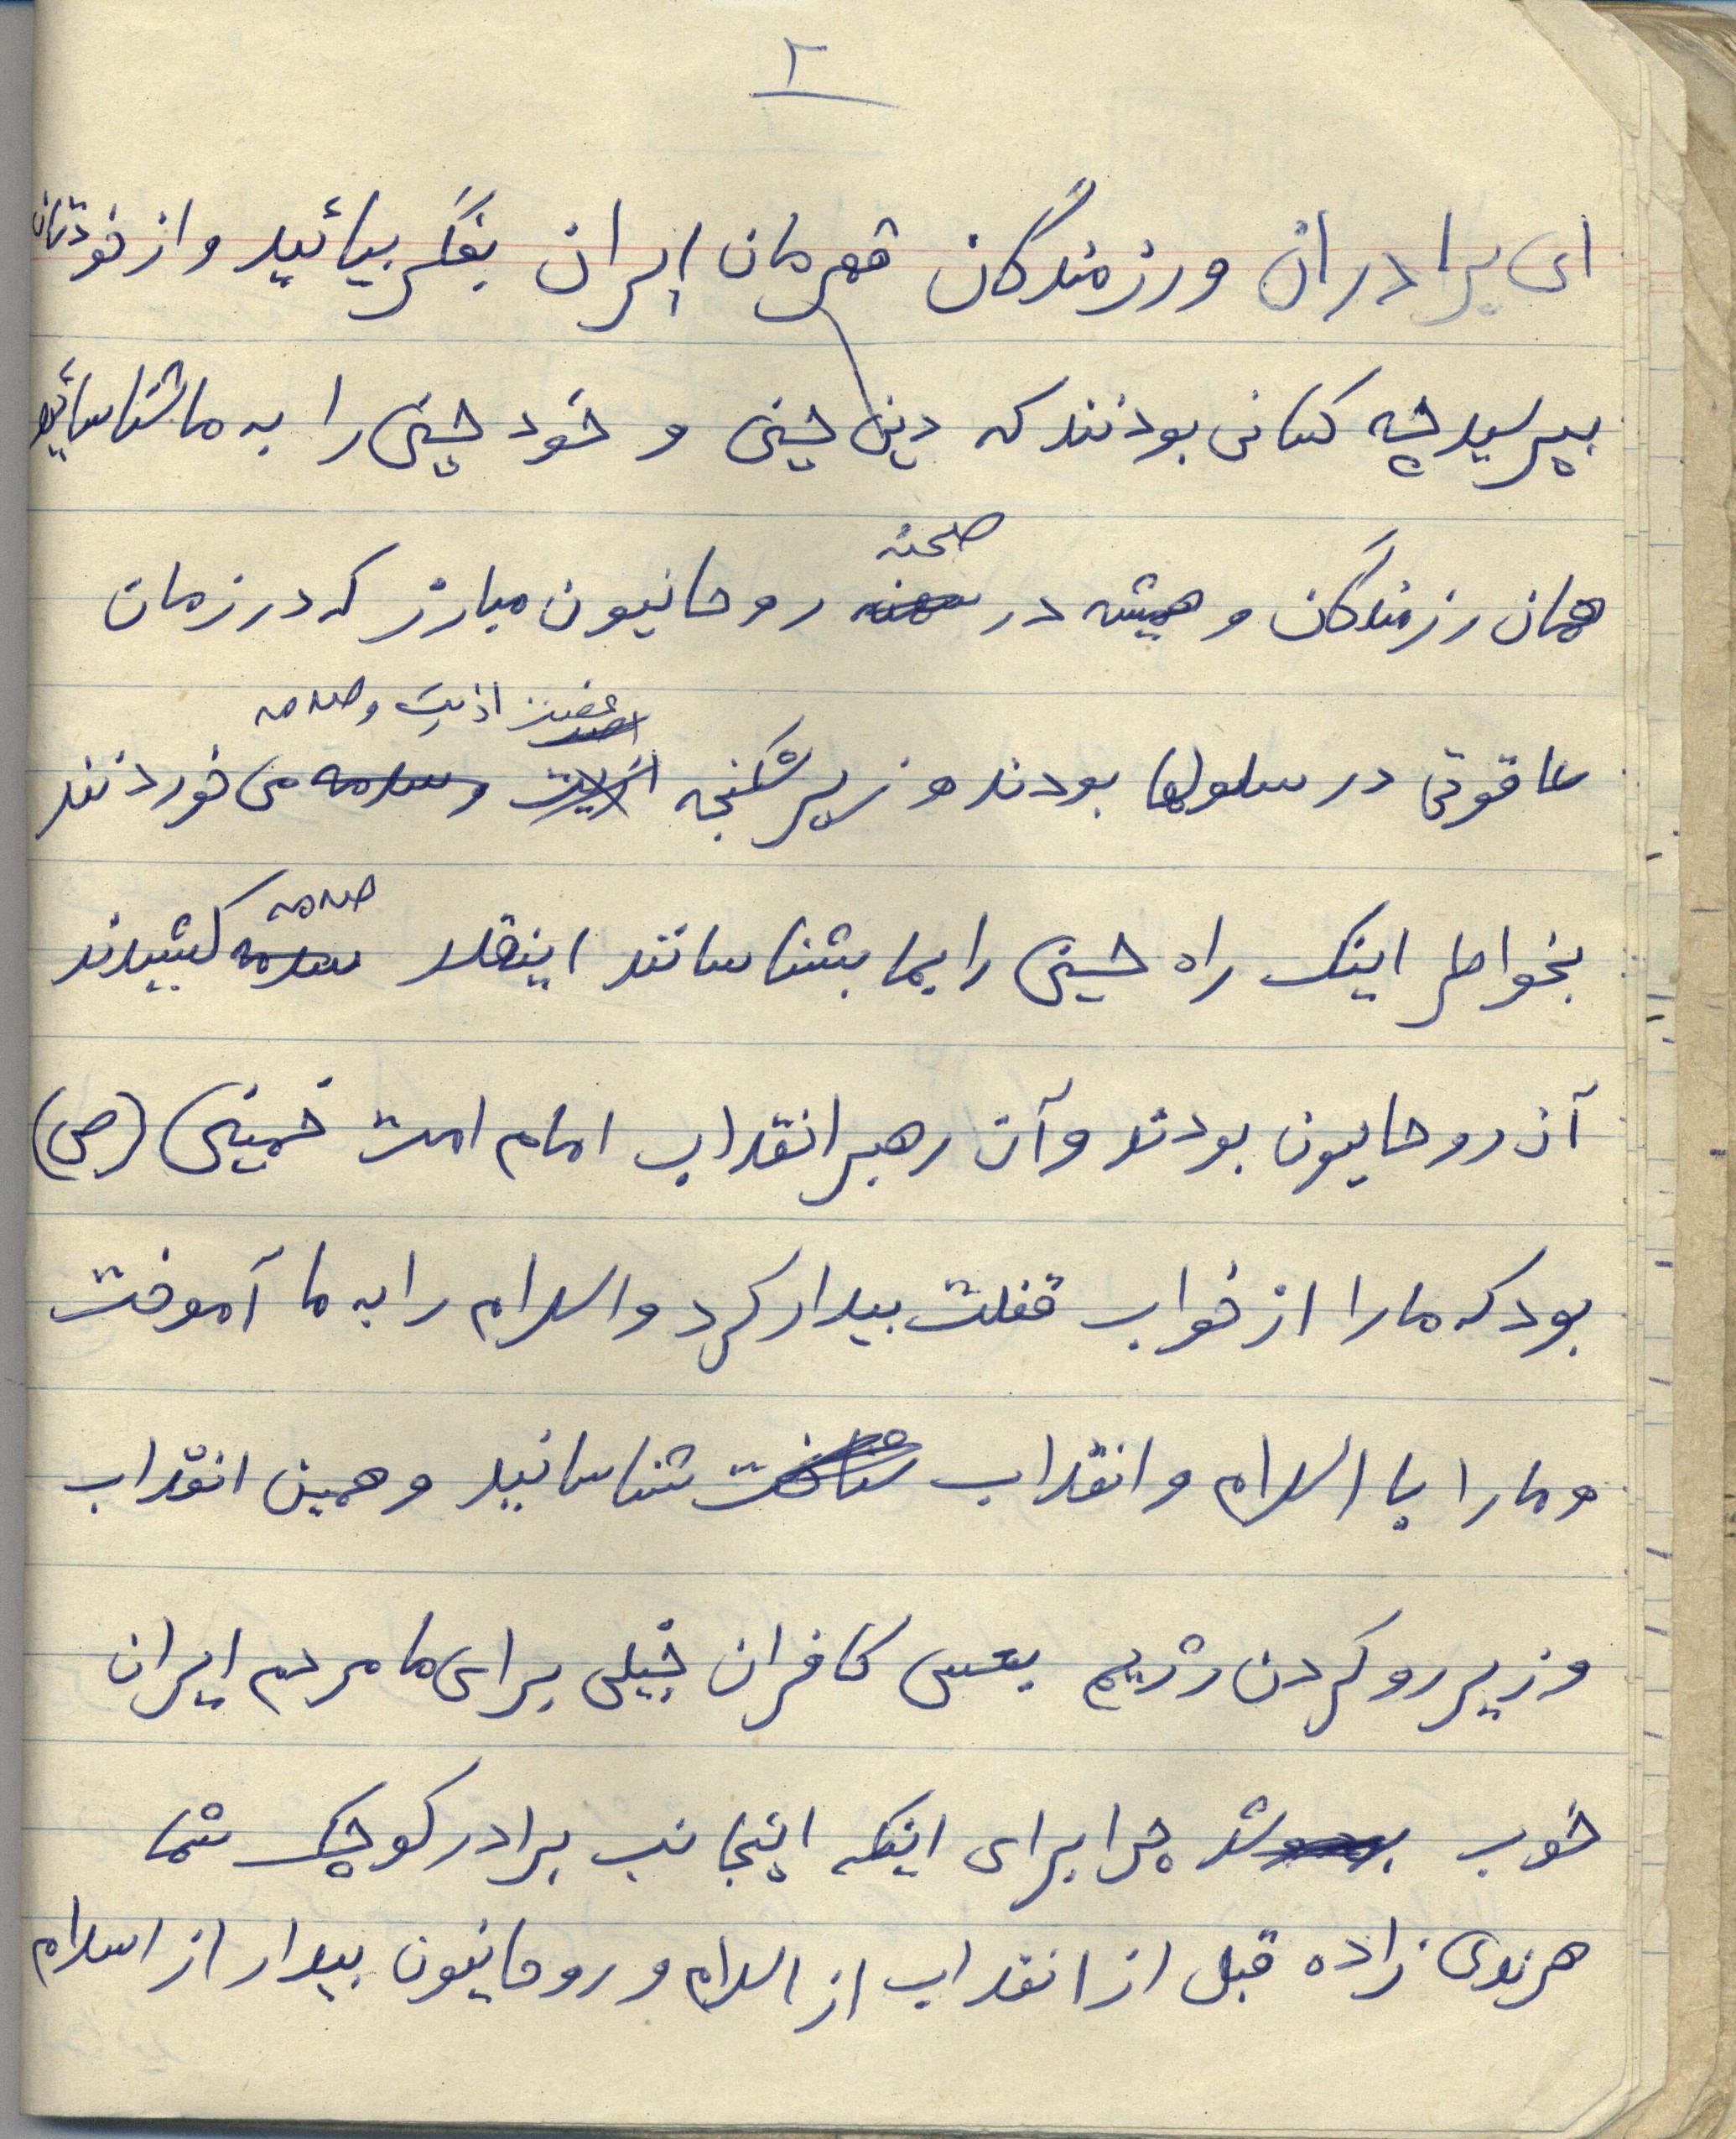 ۲
ای برادران ورزمندگان قهرمان ایران بفکر بیائید و از خودتان
بپرسید چه کسانی بودنند که دین حسینی و خود حسینی را به ما شناسائید
همان رزمندگان و همیشه در صحنه روحانیون مبارز که در زمان
طاقوتی در سلولها بودند و زیر شکنجه اذیت و صدمه می خوردنند
بخواطر اینک راه حسینی را بما بشناسانند اینقدر صدمه کشیدند
آن روحانیون بودند و آن رهبر انقلاب امام امت خمینی (ص)
بود که ما را از خواب قفلت بیدار کرد و اسلام را به ما آموخت
و ما را با اسلام و انقلاب شناسانید و همین انقلاب
و زیر رو کردن رژیم بعسی کافران خیلی برای ما مردم ایران
خوب شد چرا برای اینکه اینجانب برادر کوچک شما
هرندی زاده قبل از انقلاب از اسلام و روحانیون بیدار از اسلام